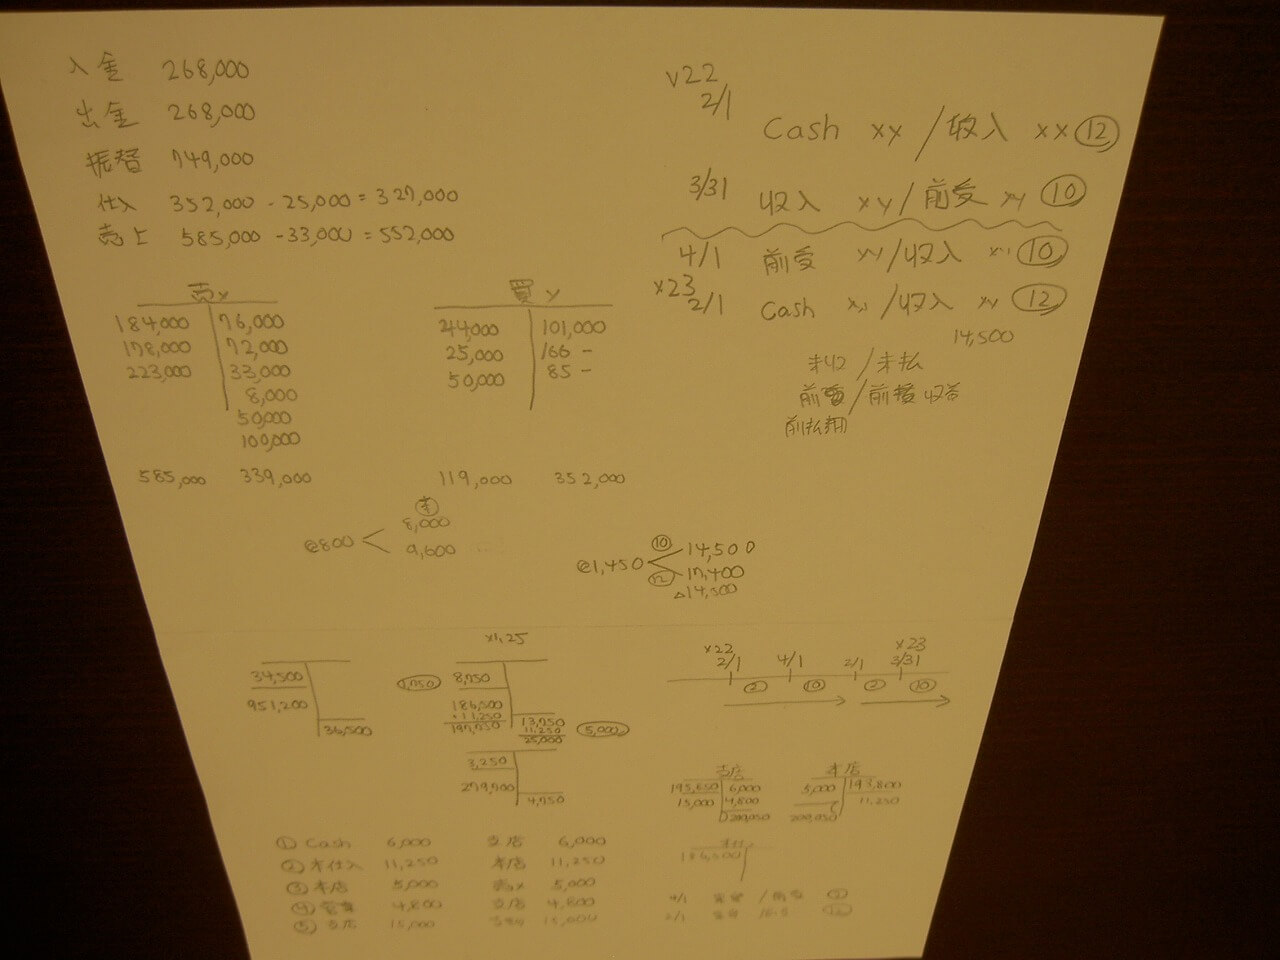 入金 268,000
出金 268,000
振替 749,000
仕入 352,000 - 25,000 = 327,000
売上 585,000 - 33,000 = 552,000
売 x
184,000 76,000
178,000 72,000
223,000 33,000
8,000
50,000
100,000
585,000 339,000
買
44,000 101,000
25,000 166 -
50,000 85 -
119,000 352,000
@800
8,000
9,600
@1,450
⑩ 14,500
⑫ 17,400
△14,500
x22
2/1
Cash xy / 収入 xx ⑫
3/31 収入 xy / 前受 xy ⑩
4/1 前受 xy / 収入 ⑩
x23
2/1 Cash / 収入 xy ⑫
14,500
未収 / 未払
前受 / 前受収益
前払費用
34,500
951,200
36,500
x1.25
1,750
8,750
186,500
11,250
197,750
13,750
11,250
25,000
5,000
3,250
279,900
4,750
x22 x23
2/1 4/1 2/1 3/31
② ⑩ ② ⑩
支店 本店
195,850 6,000
15,000 4,800
200,050
5,000 193,800
11,250
200,050
186,500
① Cash 6,000 支店 6,000
② 本仕入 11,250 本店 11,250
③ 本店 5,000 売x 5,000
④ 営業 4,800 支店 4,800
⑤ 支店 15,000 15,000
4/1
2/1